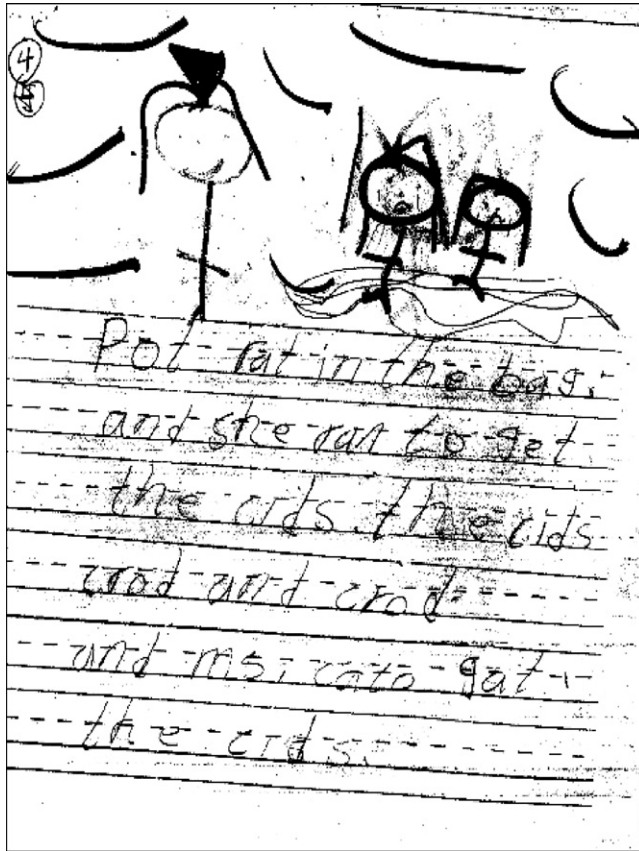 4
Pot rat in the bag.
and she ran to get
the cids. the cids
crod and crod
and ms. cato gat
the cids.